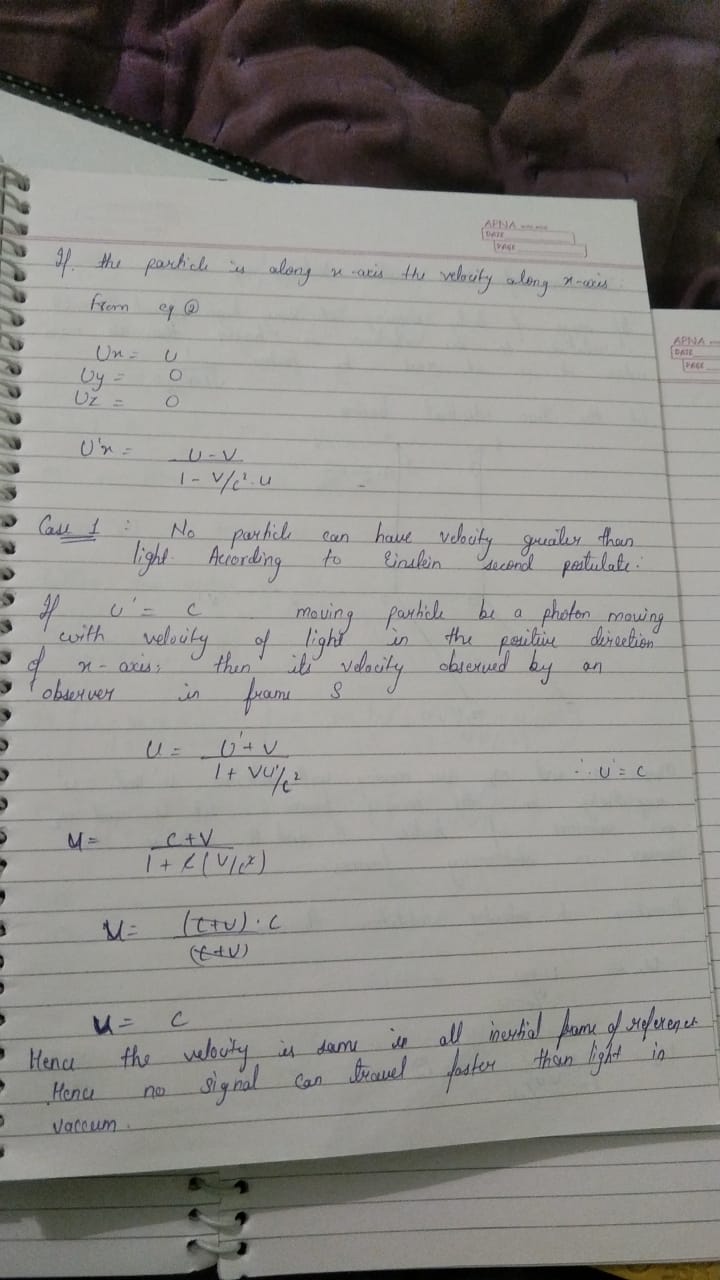 APNA
DATE
PAGE
If. the particle is along x-axis the velocity along x-axis
from eq ②
Ux = U
Uy = 0
Uz = 0
U'x = U-V
1 - V/c².u
APNA
DATE
PAGE
Case 1 : No particle can have velocity greater than
light. According to Einstein second postulate.
If U' = C moving particle be a photon moving
with velocity of light in the positive direction
of x-axis, then its velocity observed by an
observer in frame S
U = U'+V
1+ VU'/c² ∴ U' = C
U = C+V
1+ c(V/c²)
U = (C+V).C
(C+V)
U = C
Hence the velocity is same in all inertial frame of reference
Hence no signal can travel faster than light in
vaccum.